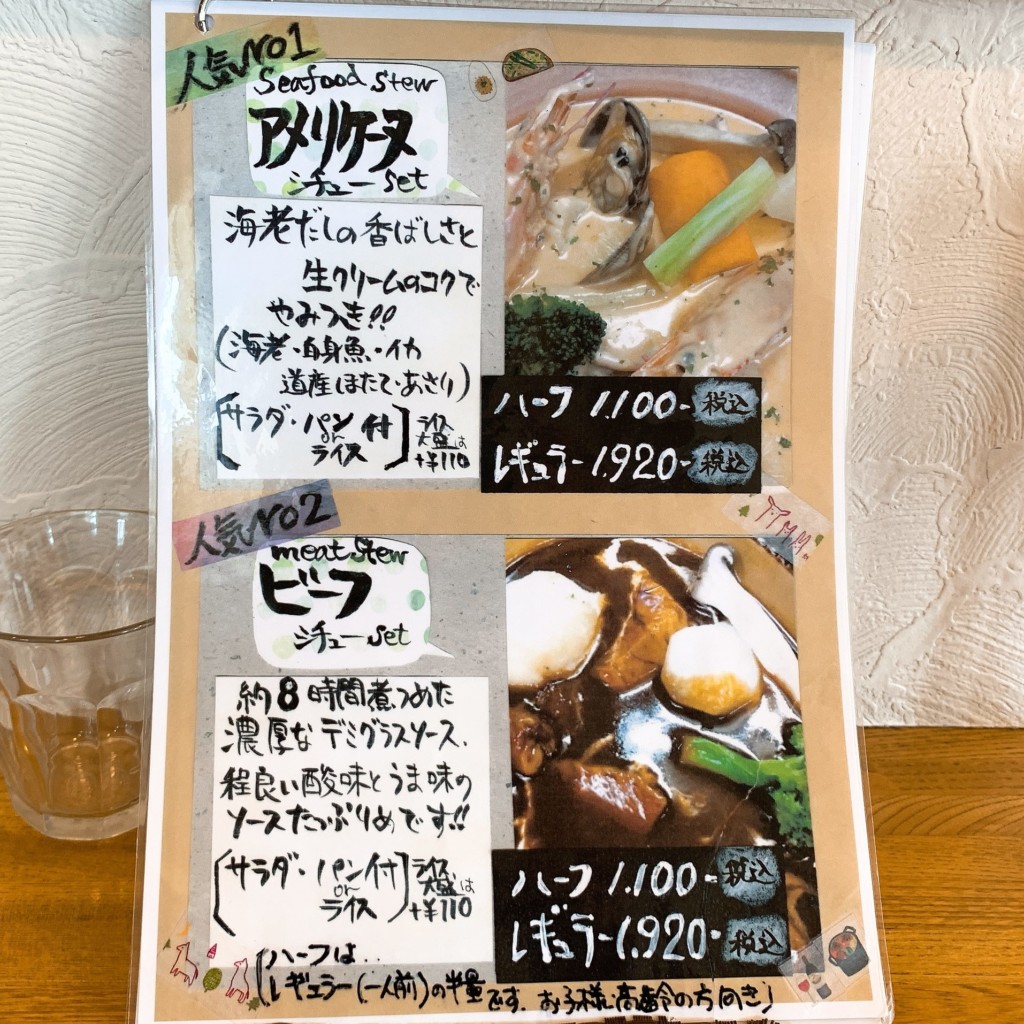 人気NO1
Seafood stew
アメリケーヌ
シチュー set
海老だしの香ばしさと
生クリームのコクで
やみつき!!
(海老・白身魚・イカ
道産ほたて・あさり)
[サラダ・パン付]
or
ライス
ライス
大盛は
+¥110
ハーフ 1,100- 税込
レギュラー 1,920- 税込
人気NO2
meat stew
ビーフ
シチュー set
約8時間煮つめた
濃厚なデミグラスソース、
程良い酸味とうま味の
ソースたっぷりめです!!
[サラダ・パン付]
or
ライス
ライス
大盛は
+¥110
ハーフ 1,100- 税込
レギュラー 1,920- 税込
(ハーフは..
レギュラー(一人前)の半量です。お子様、高齢の方向き)